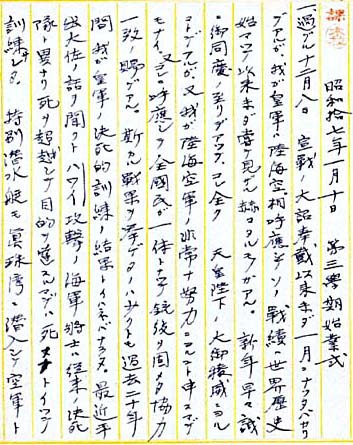 昭和拾七年一月十日 第三學期始業式
一、過グル十二月八日 宣戰ノ大詔奉戴以来マダ一月ニナツタバカリ
デアルガ、我ガ皇軍ハ陸海空相呼應シテソノ戰績ハ世界歴史
始マツテ以来未ダ嘗テ見ザル赫々タルモノガアル。新年早々誠ニ
御同慶ノ至リデアツテ、コレ全ク 天皇陛下ノ大御稜威ニヨル
コトデアルガ、又我ガ陸海空軍ノ非常ナ努力ニヨルト申スマデ
モナイ。又コレニ呼應シテ全國民ガ一体トナツテ銃後ヲ固メタ協力
一致ノ賜デアル。斯カル戰果ヲ挙ゲタノハ少クトモ過去二十年
間我ガ皇軍ノ決死的訓練ノ結果トイハネバナラヌ。最近平
出大佐ノ話ヲ聞クト ハワイ攻撃ノ海軍将士ハ従来ノ決死
隊ト異ナリ死ヲ超越シテ目的ヲ達スルマデハ死ナナイトイフ
訓練ヲシタ。特別潜水艇モ真珠湾ニ潜入シテ空軍ト